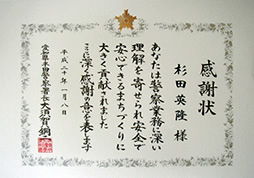 感謝状
杉田英隆 様
あなたは警察業務に深い
理解を寄せられ安全で
安心できるまちづくりに
大きく貢献されました
ここに深く感謝の意を表します
平成二十年一月八日